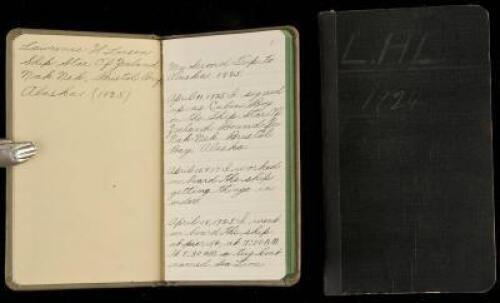 Lawrence H Larson
Ship Star Of Zealand
Nak Nek, Bristol Bay
Alaska (1925)
1
My Second Trip to
Alaska 1925.
April 11, 1925 I signed
up as Cabin Boy
on the Ship Star Of
Zealand bound for
Nak Nek Bristol
Bay Alaska
April 16 & 17 I worked
on board the ship
getting things in
order.
April 18, 1925 I went
on board the ship
at pier at 7:00 A.M.
At 9:30 A.M. a tug boat
named Sea Lion
L.H.L
1924